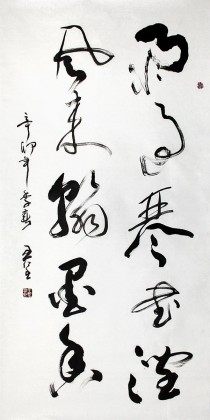 雨過琴書潤
風来翰墨香
辛卯年